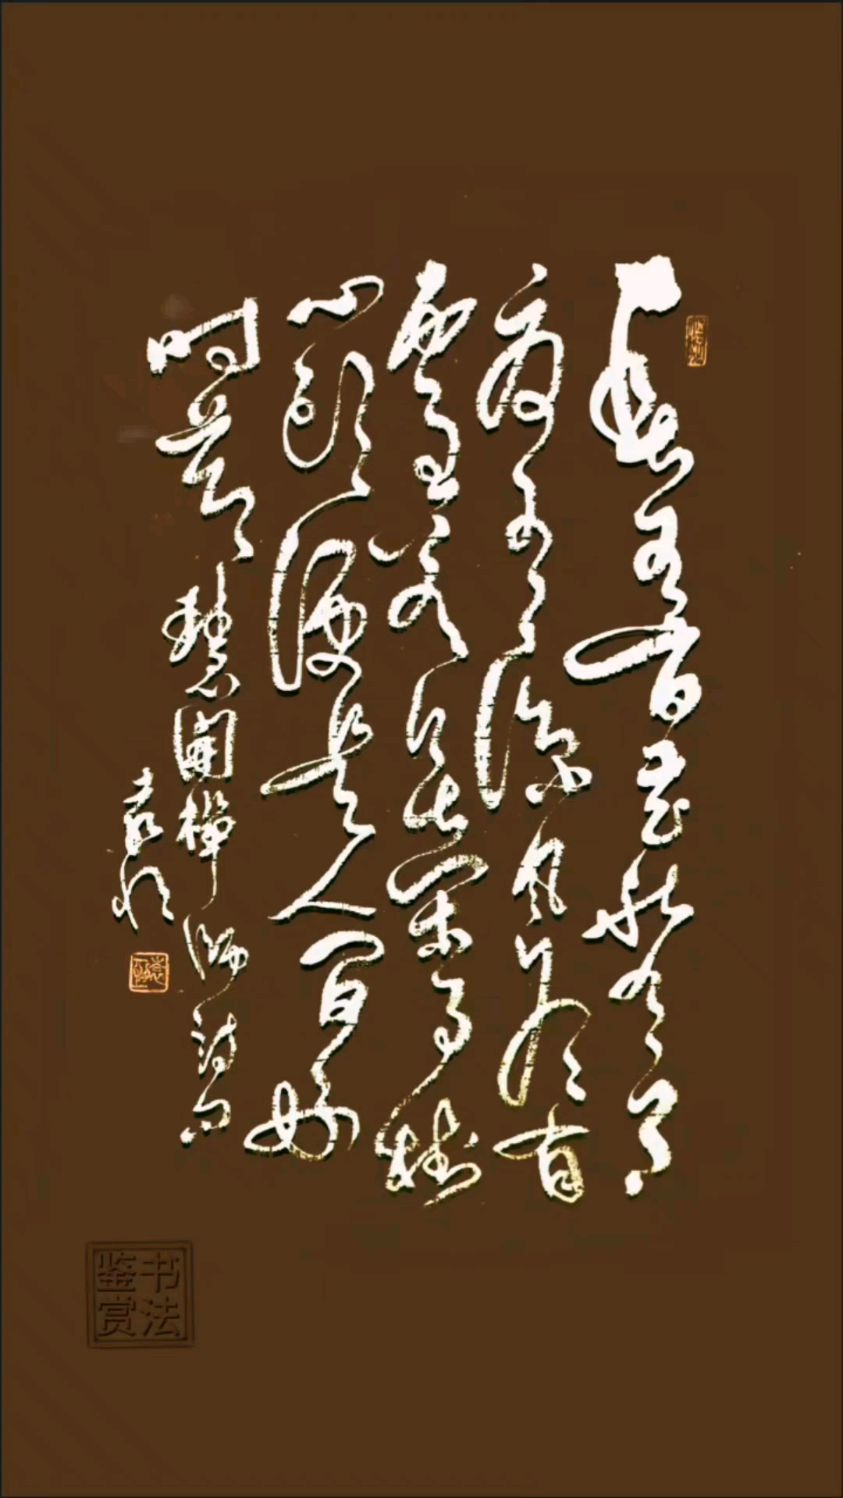 春有百花秋有月
夏有凉风冬有
雪若无闲事挂
心头便是人间好
时节 慧開禅师诗句
书法
鉴赏